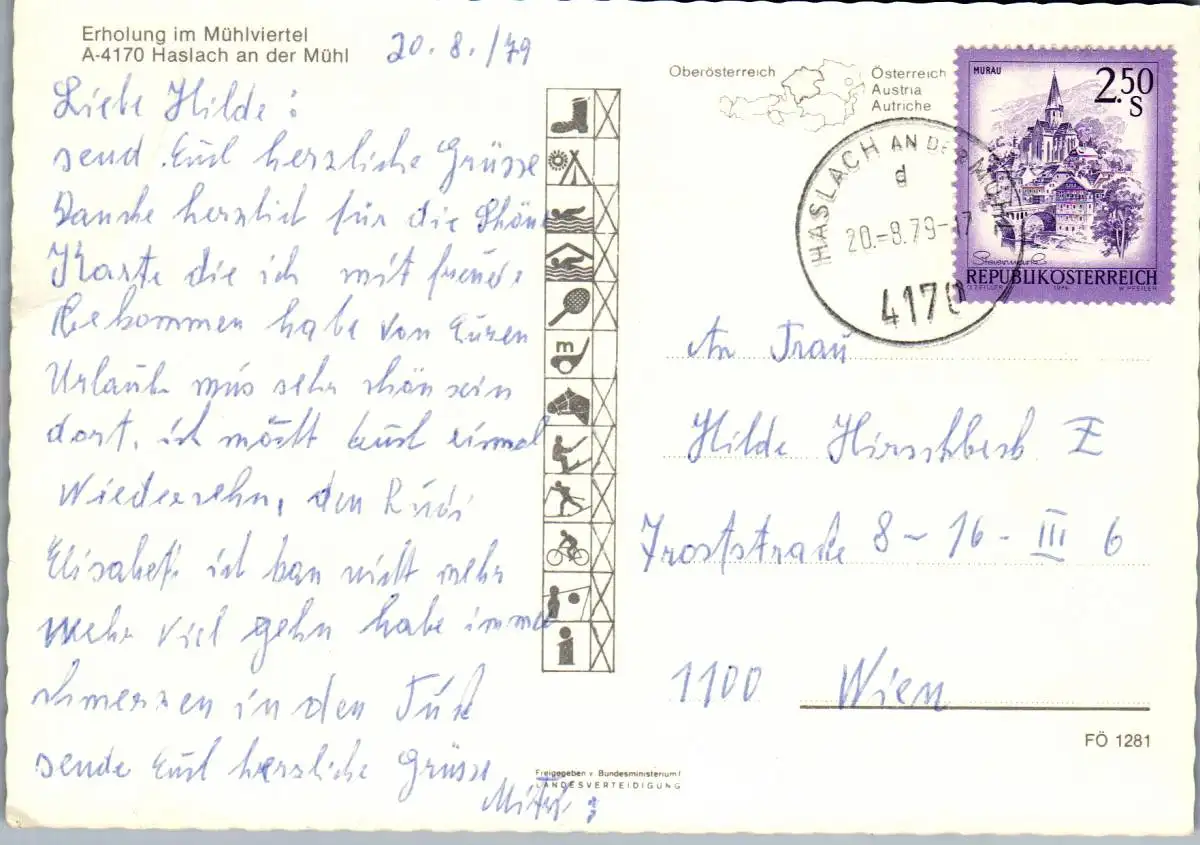 Erholung im Mühlviertel
A-4170 Haslach an der Mühl
20.8./79
Liebe Hilde:
send Euch herzliche Grüsse
Danke herzlich für die Schöne
Karte die ich mit freude
Bekommen habe von Euren
Urlaub mus sehr schön sein
dort, ich möcht Euch einmal
Wiedersehn, den Rudi
Elisabeth ich kan nicht mehr
mehr viel gehn habe immer
schmerzen in den Fuß
sende Euch herzliche Grüsse
m
i
Freigegeben v. Bundesministerium f.
LANDESVERTEIDIGUNG
Oberösterreich
Österreich
Austria
Autriche
MURAU
2.50
S
Steiermark
REPUBLIK ÖSTERREICH
O. ZEILLER 1974 W. PFEILER
HASLACH AN DER MÜHL
d
20.-8.79-17
4170
An Frau
Hilde Hirschbeck
Troststraße 8-16-III 6
1100 Wien
FÖ 1281